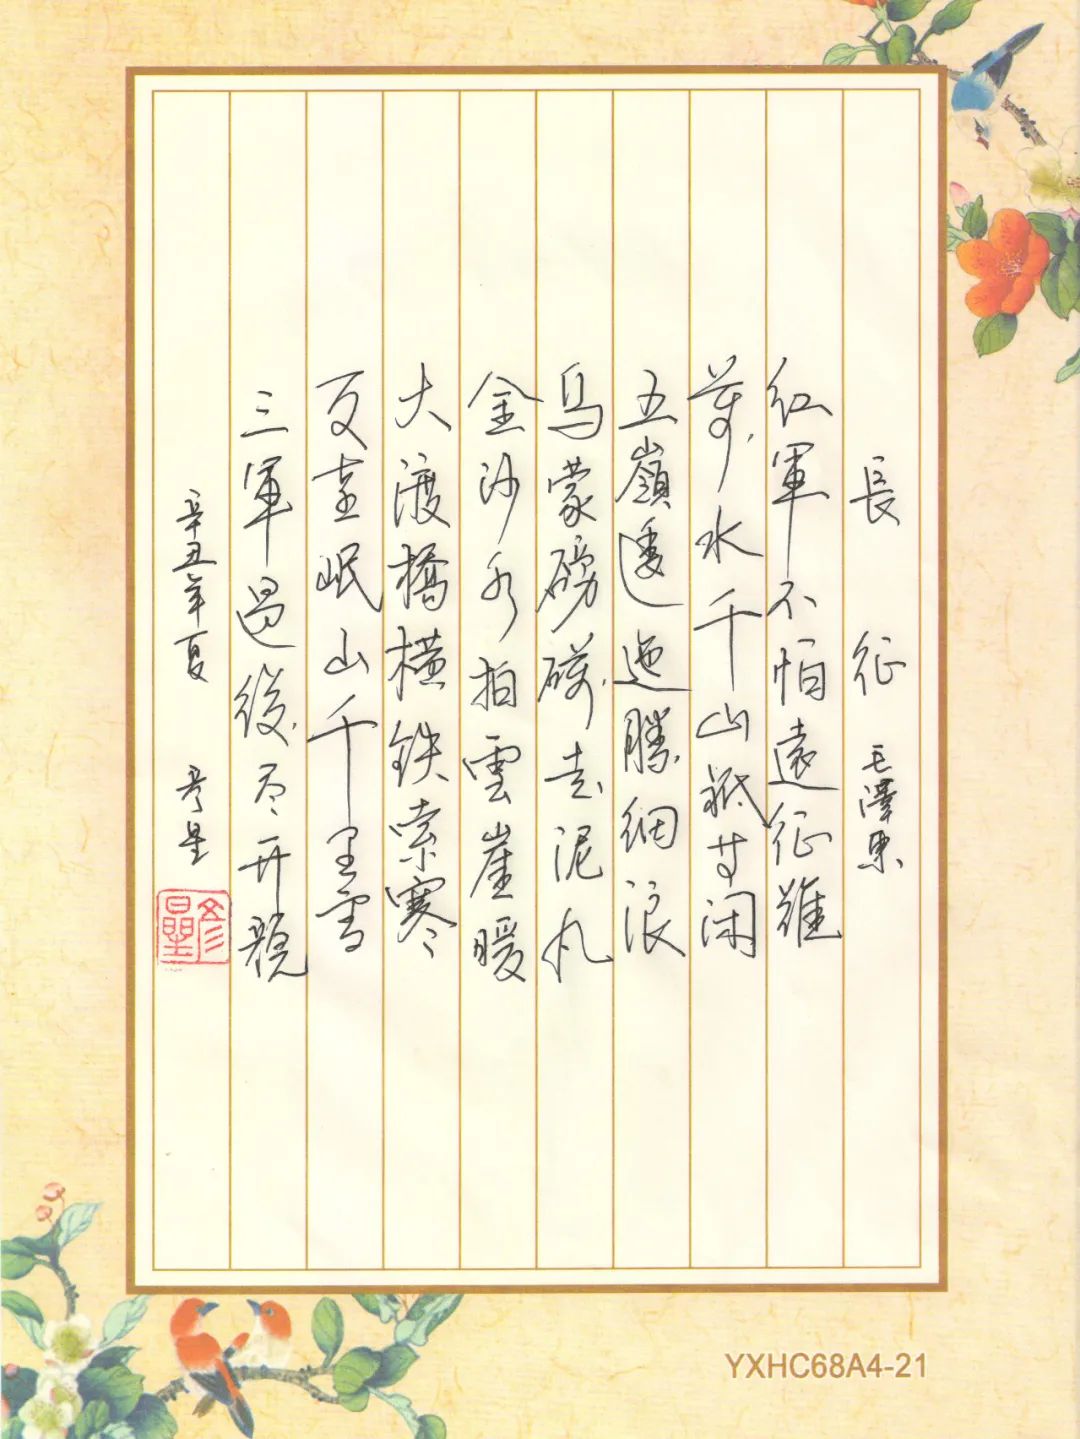 長征 毛澤東
红軍不怕遠征難
萬水千山祇等闲
五嶺逶迤騰細浪
烏蒙磅礴走泥丸
金沙水拍雲崖暖
大渡橋橫鉄索寒
更喜岷山千里雪
三軍過後尽开颜
辛丑年夏 彦星
YXHC68A4-21